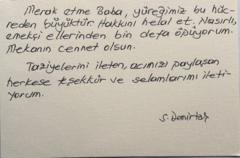 Merak etme Baba, yüreğimiz bu hüc-
reden büyüktür. Hakkını helal et. Nasırlı,
emekçi ellerinden bin defa öpüyorum.
Mekanın cennet olsun.
Taziyelerini ileten, acımızı paylaşan
herkese teşekkür ve selamlarımı ileti-
yorum.
S. Demirtaş